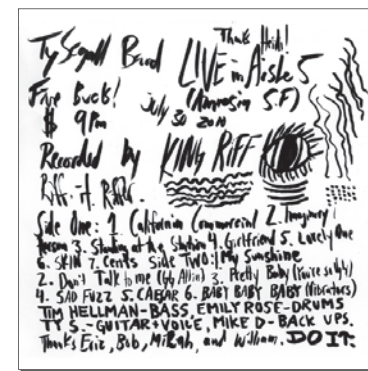 Thanks Heidi!
Ty Segall Band LIVE in Aisle 5
Five Buck! July 30 2010 (Amnesia S.F)
$ 9 Pm
Recorded by KING RIFF
Riff. it.
Side One: 1. California Commercial 2. Imaginary
Person 3. Standing at the Station 4. Girlfriend 5. Lovely One
6. SKIN 7. Cents Side TWO: 1 My Sunshine
2. Don't Talk to me (GG Allin) 3. Pretty Baby (You're so Ugly)
4. SAD FUZZ 5. CAESAR 6. BABY BABY BABY (Vibrators)
TIM HELLMAN-BASS, EMILY ROSE-DRUMS
TY S.-GUITAR+VOICE, MIKE D-BACK UPS.
Thanks Eric, Bob, Mikah, and William. DO IT.